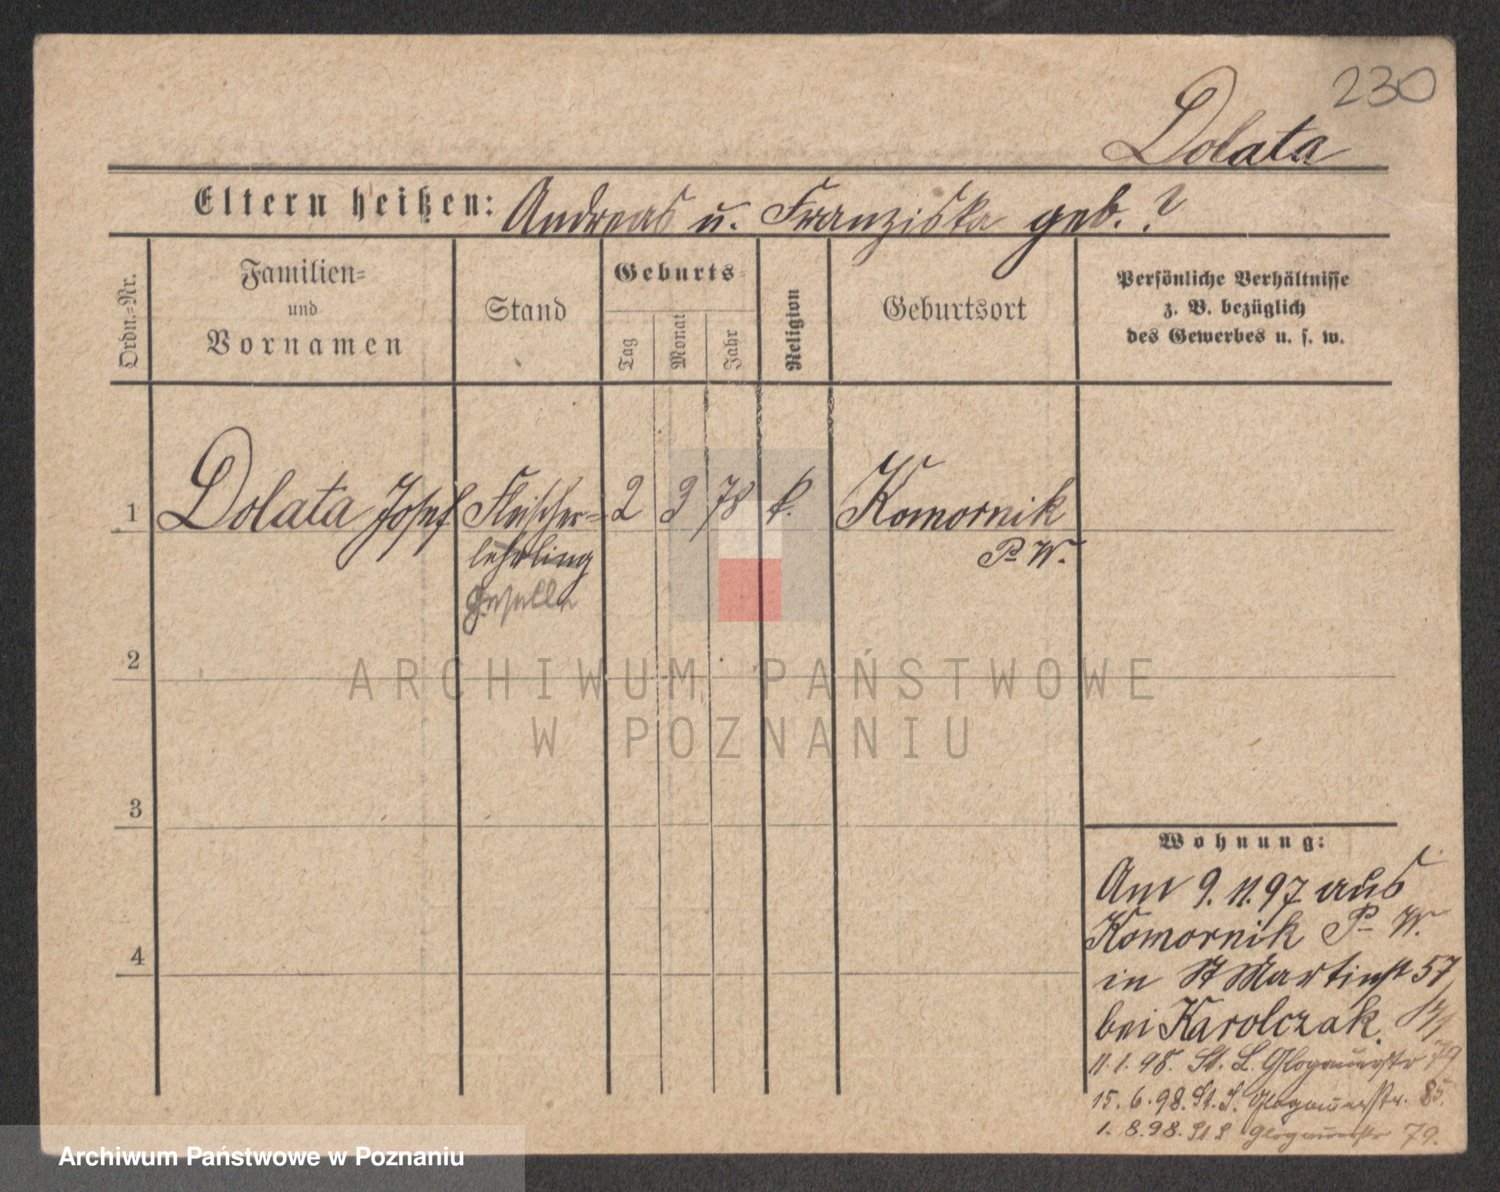 230
Dolata
Eltern heißen: Andreas u. Franziska geb. ?
Ordn.-Nr.
Familien-
und
Vornamen
Stand
Geburts-
Tag
Monat
Jahr
Religion
Geburtsort
Persönliche Verhältnisse
z. B. bezüglich
des Gewerbes u. s. w.
1 Dolata Josef Fleischer- 2 3 78 k. Komornik
lehrling P. W.
Geselle
2
ARCHIWUM PAŃSTWOWE
W POZNANIU
3
Wohnung:
Am 9.11.97 aus
Komornik P. W.
4
in St Martinst 57
bei Karolczak.
11.1.98. St. L. Glogauerstr 79
15.6.98. St. L. Glogauerstr. 85.
1.8.98. St L Glogauerstr 79.
Archiwum Państwowe w Poznaniu